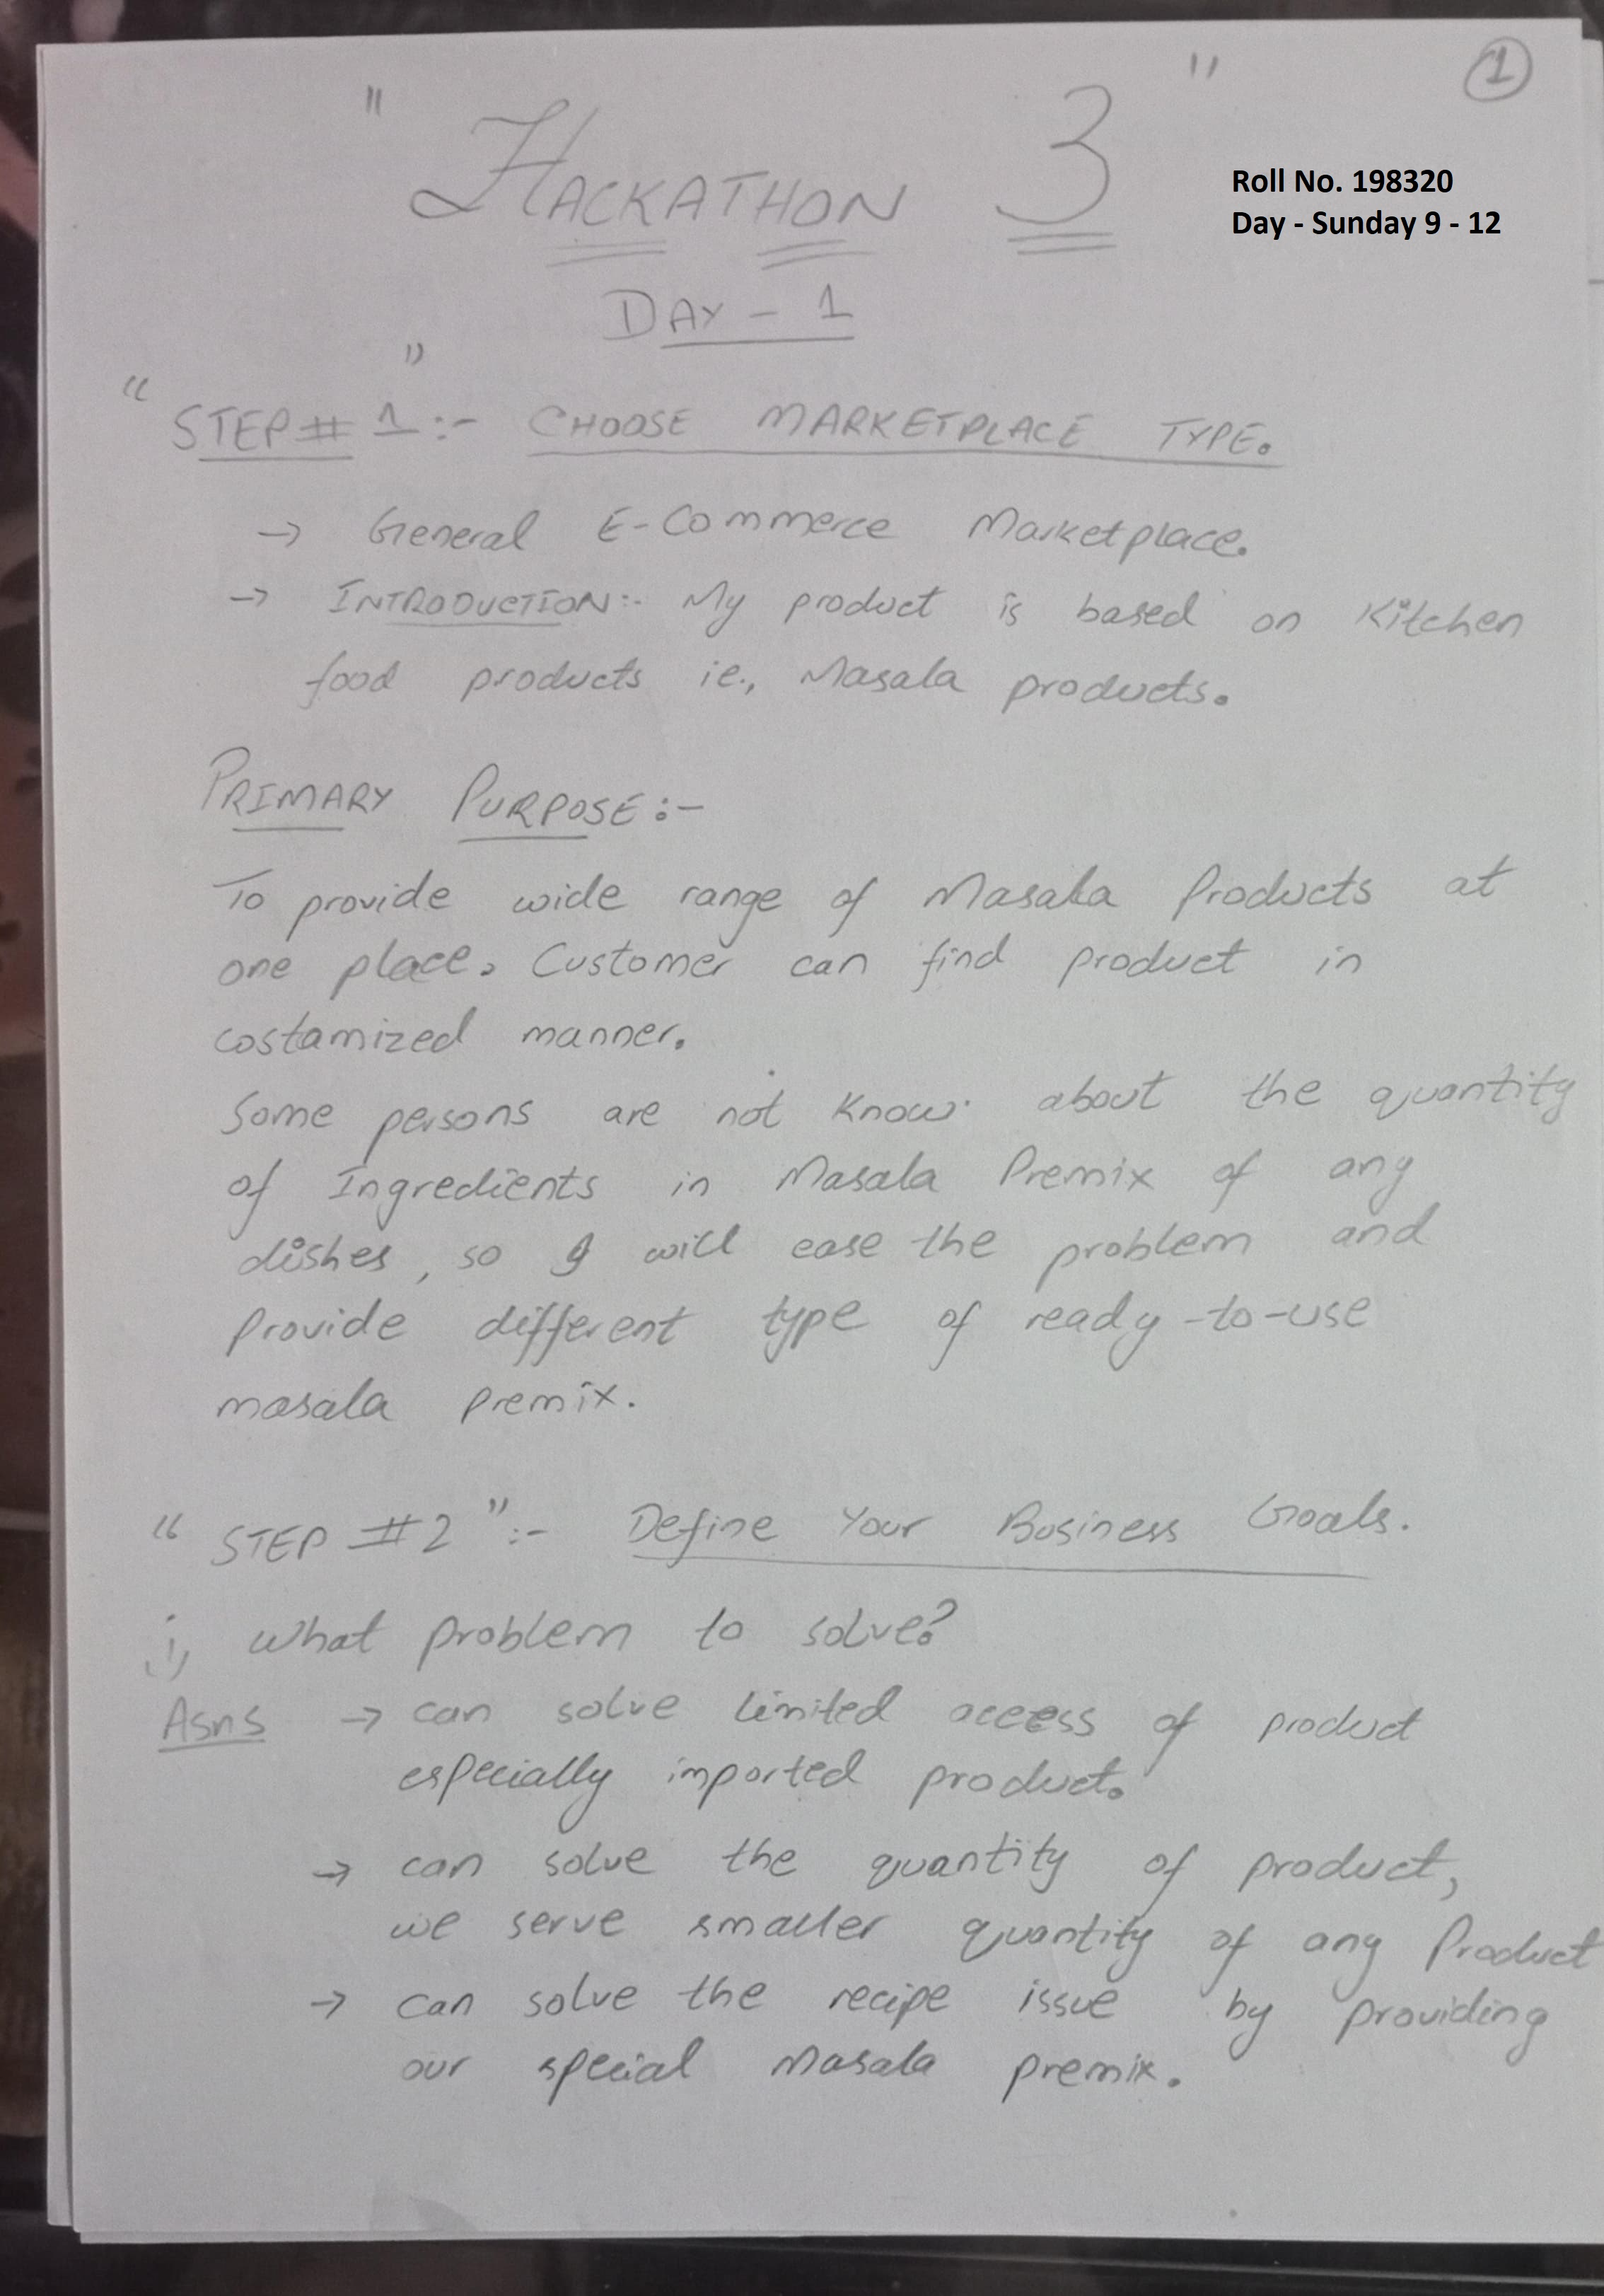 1
" HACKATHON 3 "
Roll No. 198320
Day - Sunday 9 - 12
DAY - 1
" STEP # 1 " :- CHOOSE MARKETPLACE TYPE.
→ General E-Commerce Marketplace.
→ INTRODUCTION:- My product is based on Kitchen
food products ie., Masala products.
PRIMARY PURPOSE :-
To provide wide range of Masala Products at
one place. Customer can find product in
costamized manner.
Some persons are not know about the quantity
of Ingredients in Masala Premix of any
dishes, so I will ease the problem and
Provide different type of ready-to-use
masala premix.
" STEP #2 " :- Define Your Business Goals.
i, What problem to solve?
Asns → can solve limited access of product
especially imported product.
→ can solve the quantity of product,
we serve smaller quantity of any Product
→ can solve the recipe issue by providing
our special Masala premix.